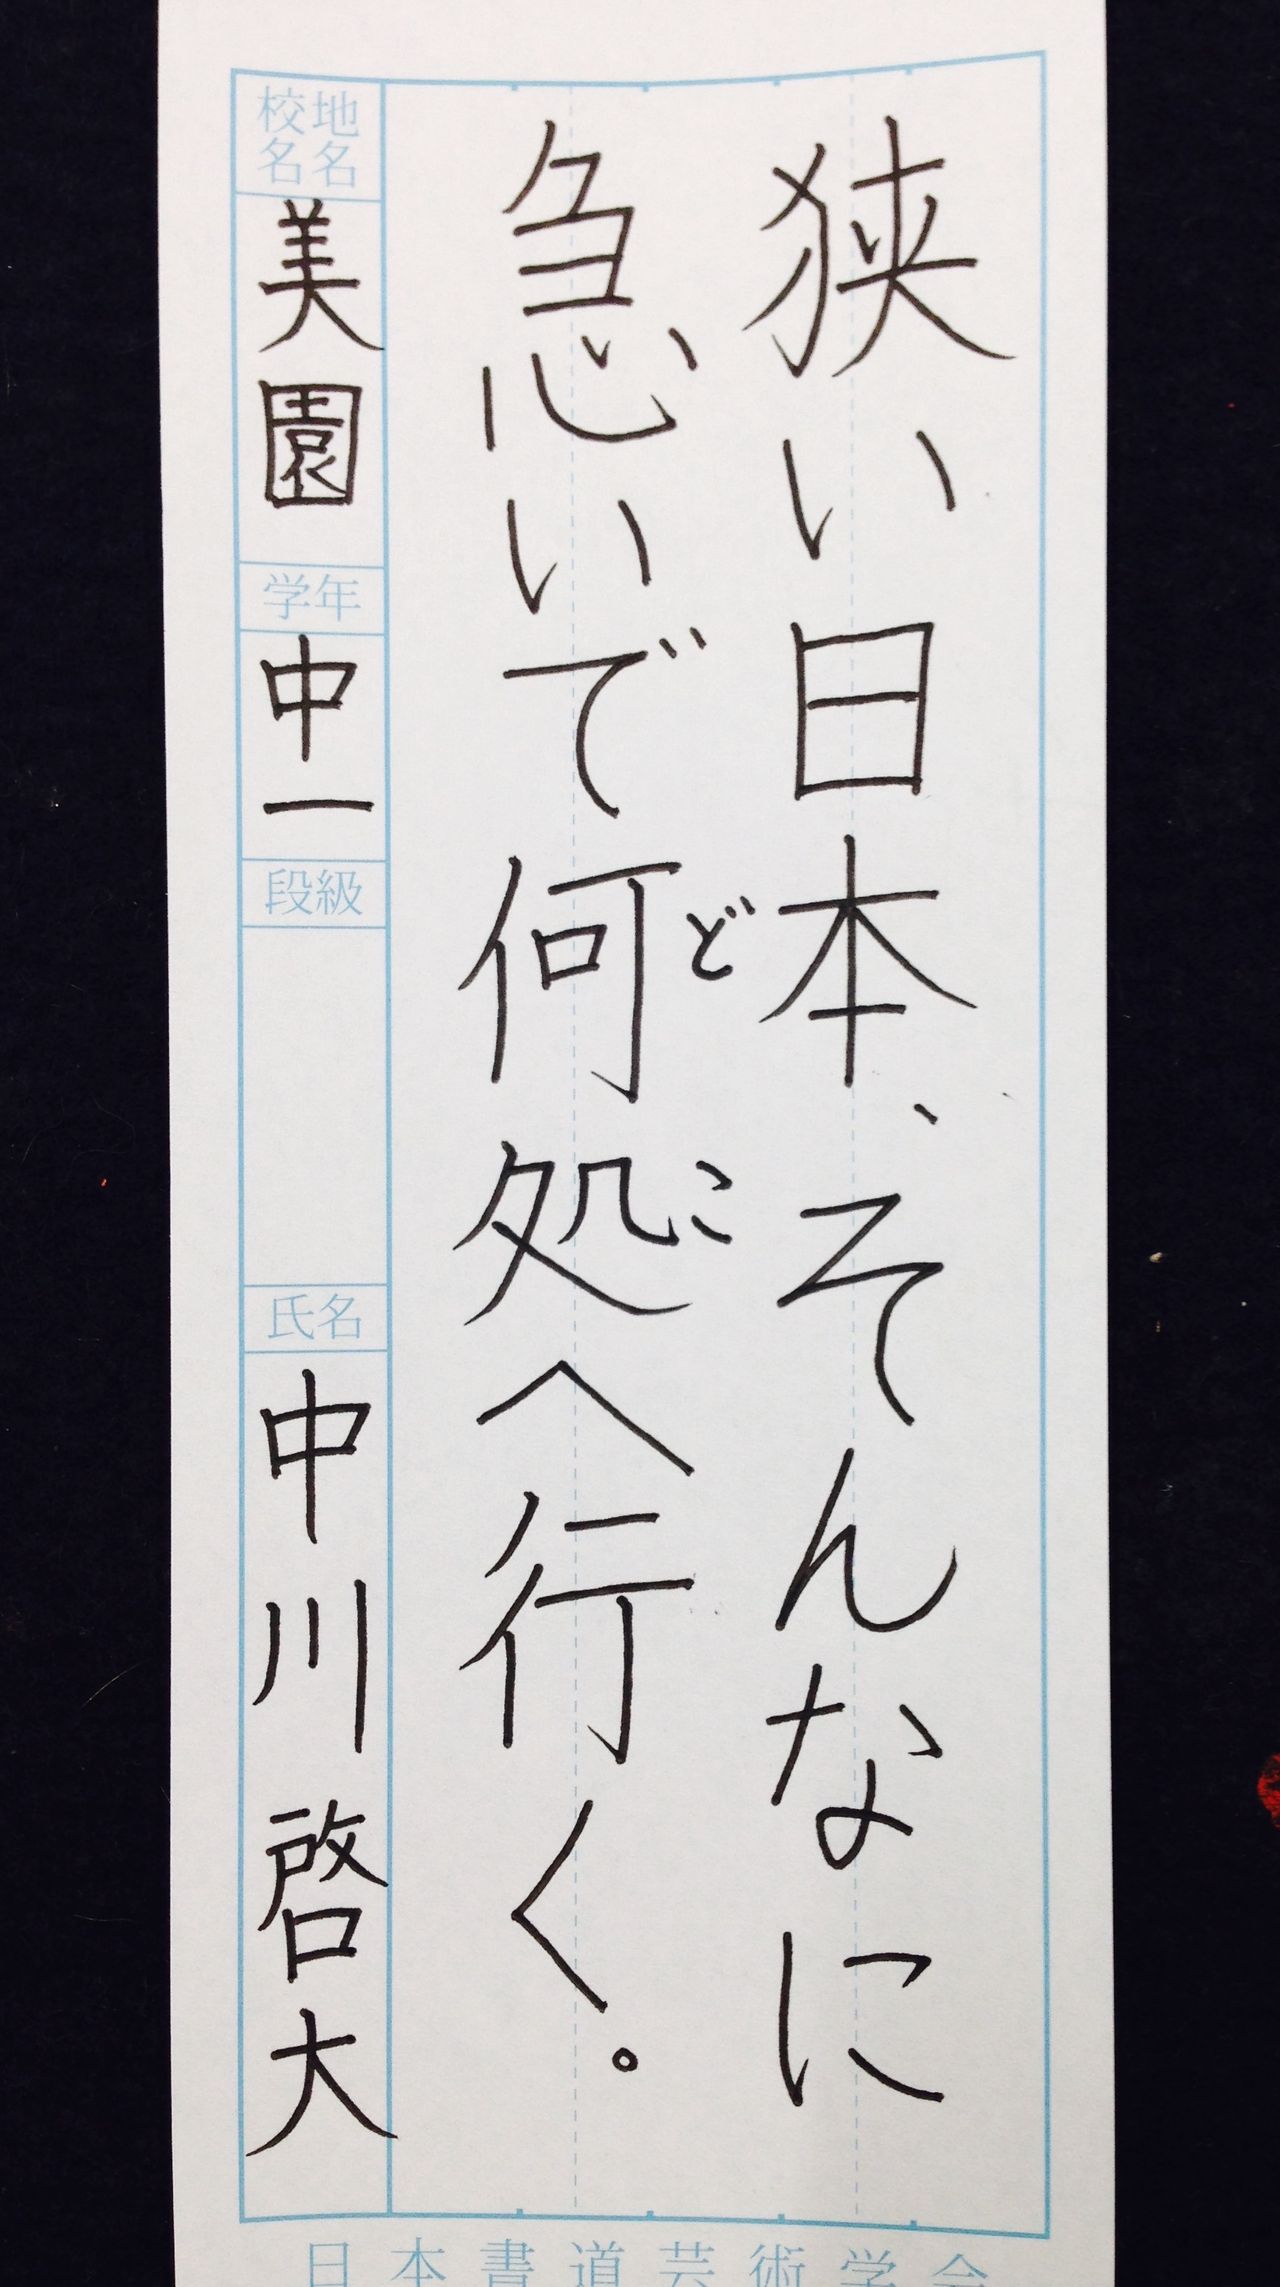 狭い日本、そんなに
急いで何処へ行く。
どこ
地名
校名
美園
学年
中一
段級
氏名
中川啓大
日本書道芸術学会